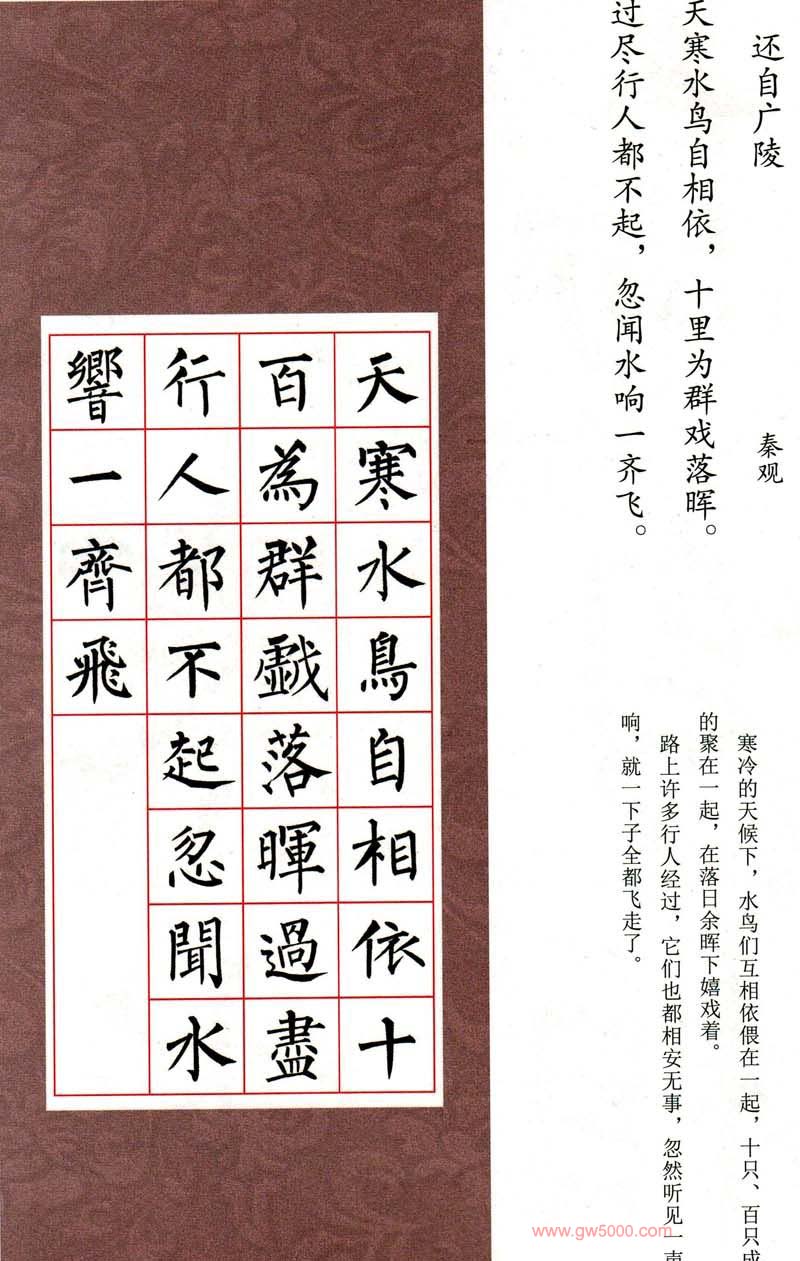 还自广陵
秦观
天寒水鸟自相依，十里为群戏落晖。
过尽行人都不起，忽闻水响一齐飞。
寒冷的天候下，水鸟们互相依偎在一起，十只、百只成
的聚在一起，在落日余晖下嬉戏着。
路上许多行人经过，它们也都相安无事，忽然听见一声
响，就一下子全都飞走了。
天寒水鳥自相依十
百為群戲落暉過盡
行人都不起忽聞水
響一齊飛
www.gw5000.com